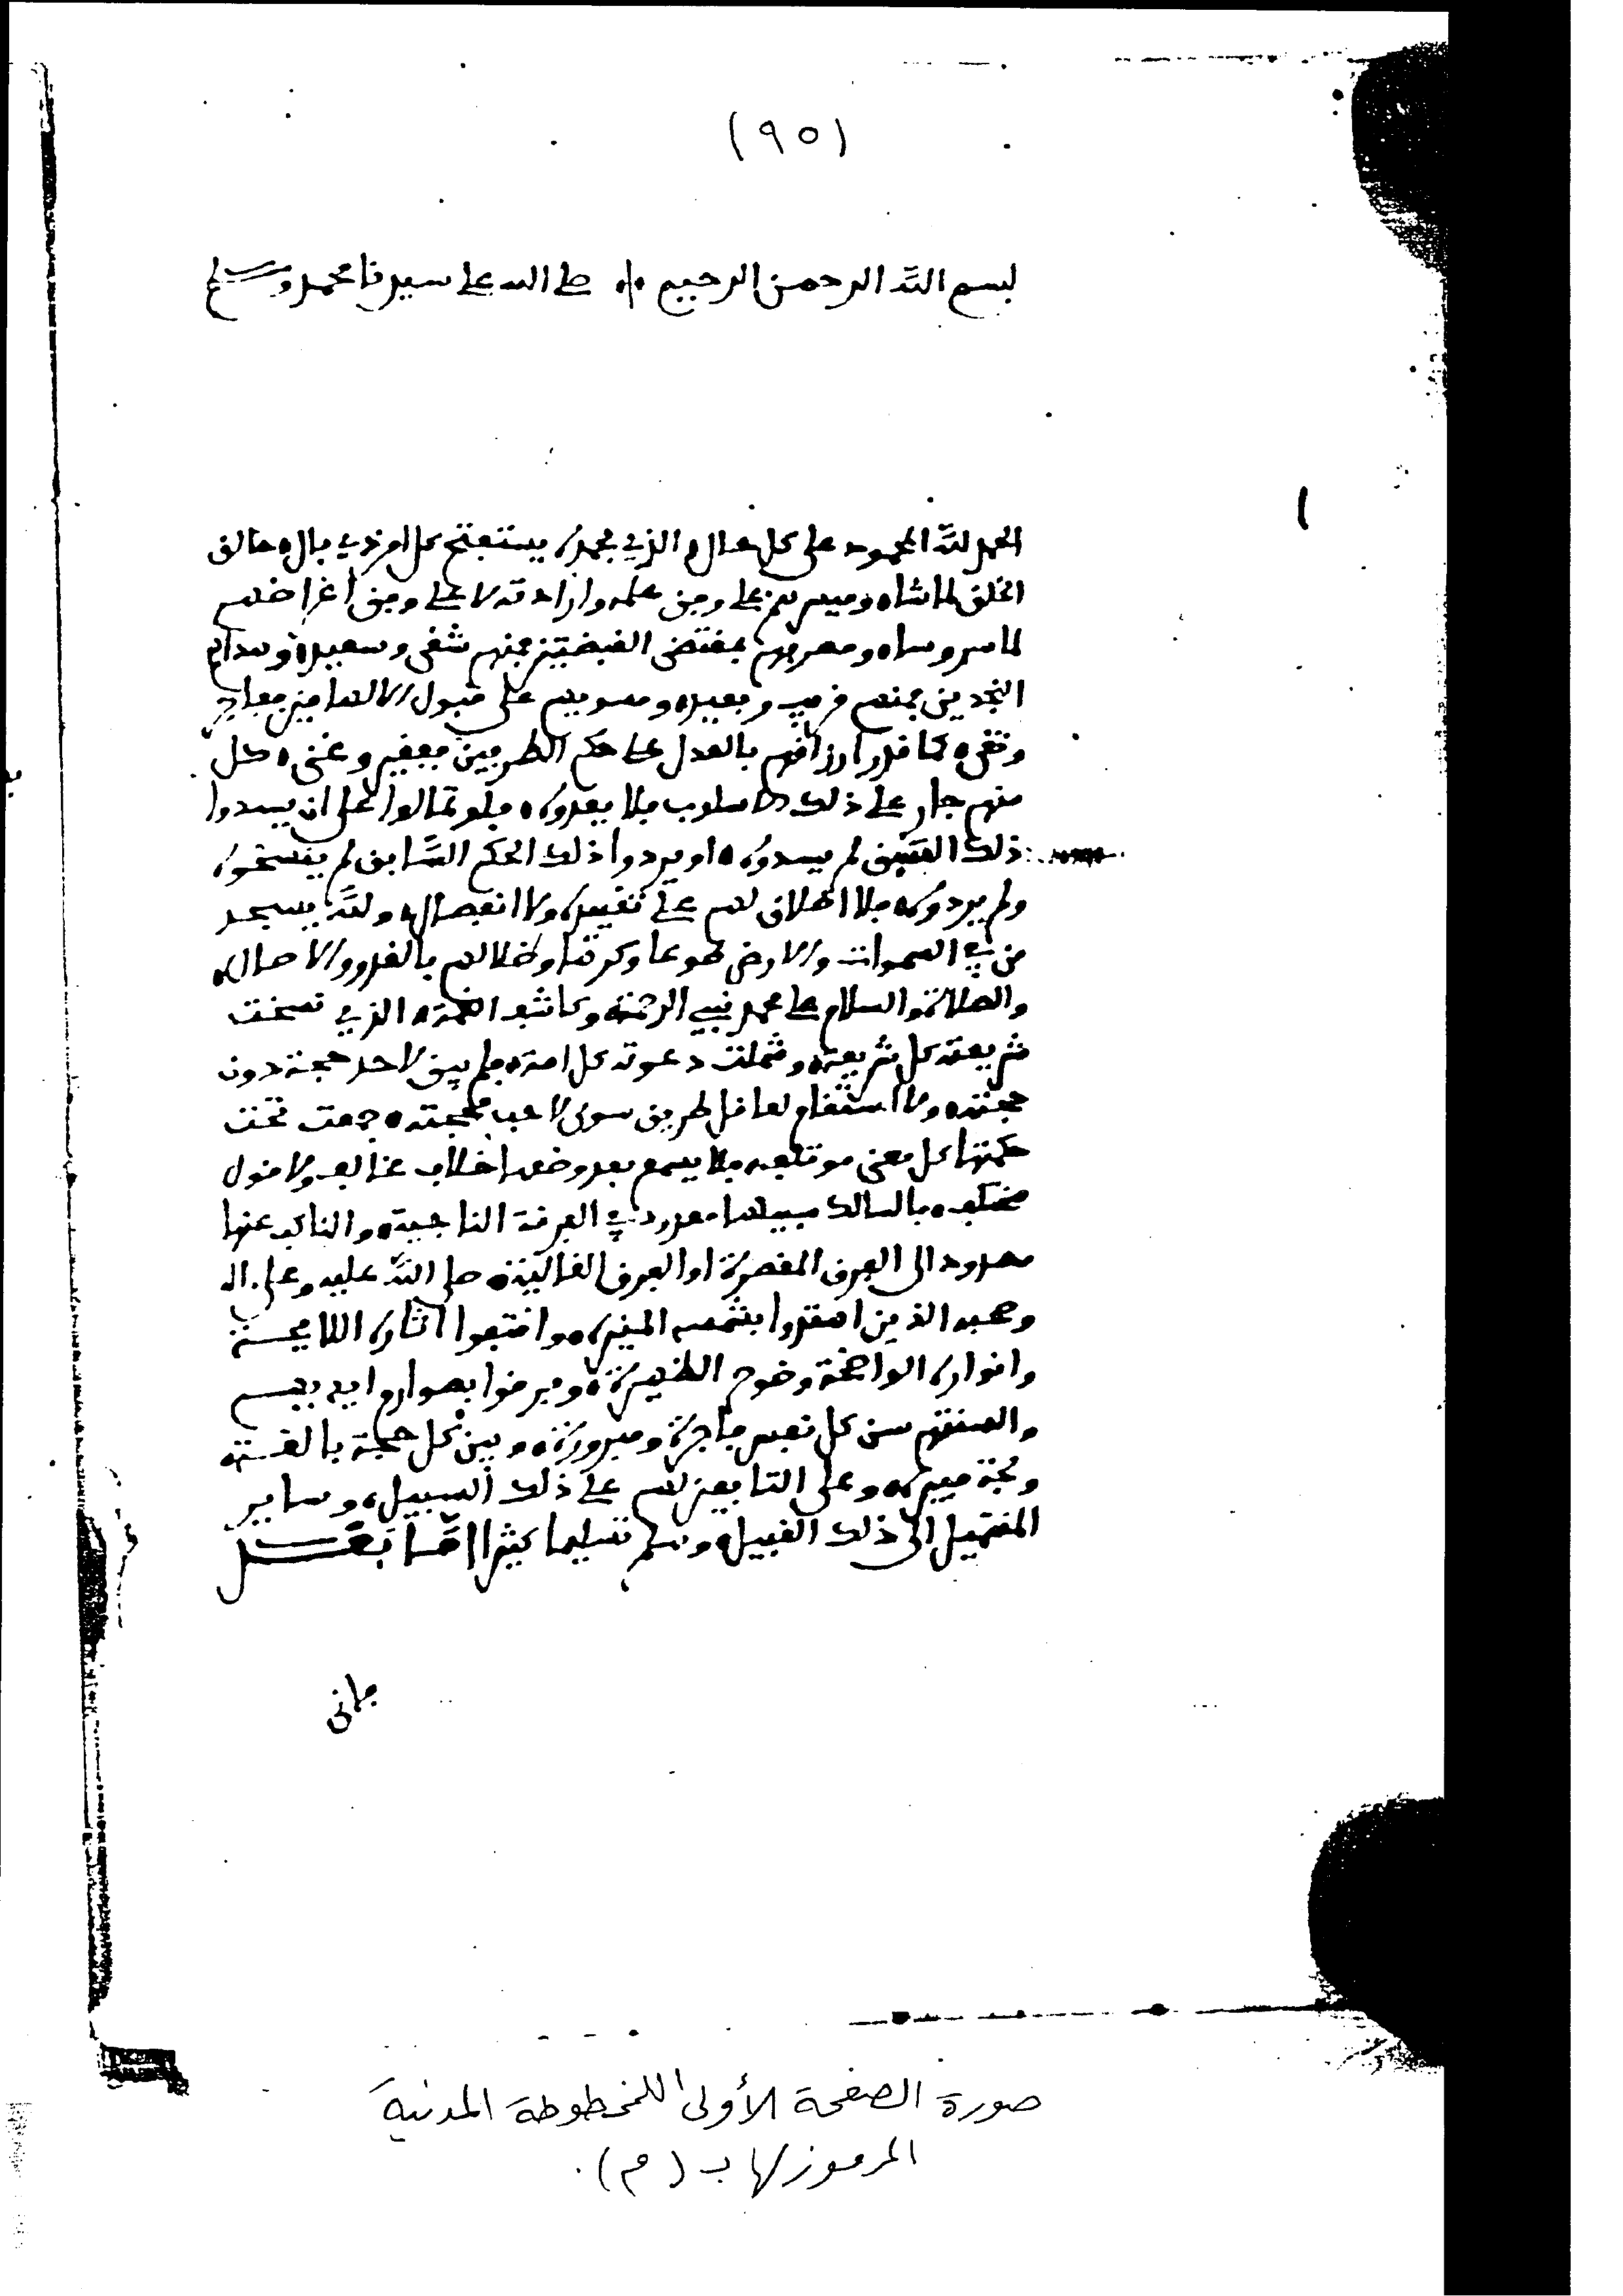 (٩٥)
بسم الله الرحمن الرحيم صلى الله على سيدنا محمد وسلم
١
الحمد لله المحمود على كل حال الذي بحمده يستفتح كل امر ذي بال خالق
الخلق لما شاء وميسرهم على وفق علمه وارادته لا على وفق اغراضهم
لما سر وساء ومصرفهم بمقتضى القبضتين فمنهم شقي وسعيد وهداهم
النجدين فمنهم قريب وبعيد ومسويهم على قبول الالهامين ففاجر
وتقي كما قدر ارزاقهم بالعدل على حكم الطرفين ففقير وغني كل
منهم جار على ذلك الاسلوب فلا يعدوه فلو تمالوا على ان يسدوا
ذلك الفتق لم يسدوه او يردوا ذلك الحكم السابق لم ينسخوه
ولم يردوه فلا اطلاق لهم على تقييده ولا انفصال ولله يسجد
من في السموات والارض طوعا وكرها وظلالهم بالغدو والاصال
والصلاة والسلام على محمد نبي الرحمة وكاشف الغمة الذي نسخت
شريعته كل شريعة وشملت دعوته كل امة فلم يبق لاحد حجة دون
حجته ولا استقام لعاقل طريق سوى لاحب محجته جمعت تحت
حكمتها كل معنى موتلف فلا يسمع بعد وضعها خلاف مخالف ولا قول
مختلف فالسالك سبيلها معدود في الفرقة الناجية والناكب عنها
مصدود الى الفرق المقصرة او الفرق الغالية صلى الله عليه وعلى اله
وصحبه الذين اهتدوا بشمسه المنيرة واقتفوا اثاره اللايحة
وانواره الواضحة وضوح الظهيرة وفرقوا بصوارم ايديهم
والسنتهم بين كل نفس فاجرة ومبرورة وبين كل حجة بالغة
وحجة مبيرة وعلى التابعين لهم على ذلك السبيل وساير
المنتمين الى ذلك القبيل وسلم تسليما كثيرا اما بعد
فاني
صورة الصفحة الأولى للمخطوطة المدنية
المرموز لها بـ (م).